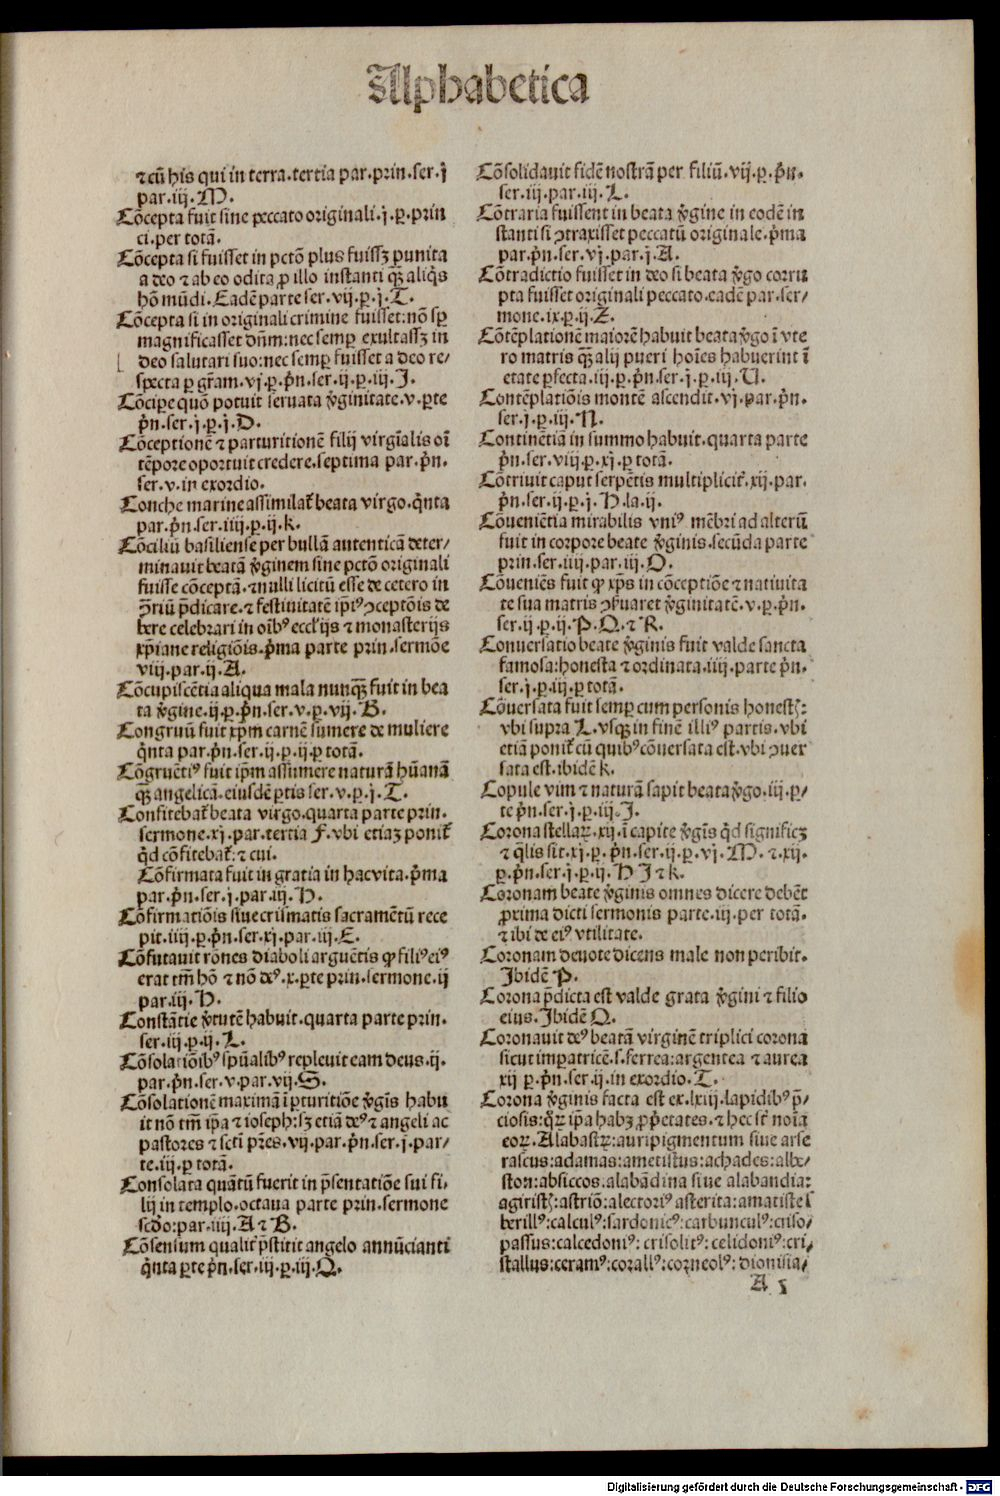 Alphabetica
⁊ cū his qui in terra. tertia par. prin. ser. ij
par. iij. M.
Cōcepta fuit sine peccato originali. j. ꝑ. prin
ci. per totā.
Cōcepta si fuisset in pctō plus fuissꝫ punita
a deo ⁊ ab eo odita ꝓ illo instanti qꝫ aliqͥs
hō mūdi. Eadē parte ser. vij. ꝑ. j. T.
Cōcepta si in originali crimine fuisset: nō sꝑ
magnificasset dn̄m: nec semꝑ exultassꝫ in
deo salutari suo: nec semꝑ fuisset a deo re/
specta ꝑ gr̄am. vj. ꝑ. pͥn. ser. ij. ꝑ. iij. J.
Cōcipe quō potuit seruata v̓ginitate. v. ꝑte
pͥn. ser. j. ꝑ. j. D.
Cōceptionē ⁊ parturitionē filij virgīalis oī
tēpore oportuit credere. septima par. pͥn.
ser. v. in exordio.
Conche marine assimilat̄ beata virgo. qͥnta
par. pͥn. ser. iiij. ꝑ. ij. k.
Cōciliū basiliense per bullā autenticā deter/
minauit beatā v̓ginem sine pctō originali
fuisse cōceptā. ⁊ nulli licitū esse de cetero in
ꝯriū p̄dicare. ⁊ festiuitatē ip̄iꝰ ꝯceptōis de
bere celebrari in oībꝰ eccl̄ijs ⁊ monasterijs
xp̄iane religiōis. pͥma parte prin. sermōe
viij. par. ij. A.
Cōcupiscētia aliqua mala nunqꝫ fuit in bea
ta v̓gine. ij. ꝑ. pͥn. ser. v. ꝑ. vij. B.
Congruū fuit xp̄m carnē sumere de muliere
qͥnta par. pͥn. ser. ij. ꝑ. ij. ꝑ totā.
Cōgruētiꝰ fuit ip̄m assumere naturā hūanā
qꝫ angelicā. eiusdē ꝑtis ser. v. ꝑ. j. T.
Confitebat̄ beata virgo. quarta parte prin.
sermone. xj. par. tertia F. vbi etiaꝫ ponit̄
qͥd cōfitebat̄: ⁊ cui.
Cōfirmata fuit in gratia in hac vita. pͥma
par. pͥn. ser. j. par. iij. H.
Cōfirmatiōis siue crismatis sacramētū rece
pit. iiij. ꝑ. pͥn. ser. xj. par. iij. E.
Cōfutauit rōnes diaboli arguētis ꝙ filiꝰ eiꝰ
erat tm̄ hō ⁊ nō deꝰ. x. ꝑte prin. sermone. ij
par. iij. H.
Constātie v̓tutē habuit. quarta parte prin.
ser. iij. ꝑ. ij. L.
Cōsolatiōibꝰ sp̄ualibꝰ repleuit eam deus. ij.
par. pͥn. ser. v. par. vij. S.
Cōsolationē maximā ī ꝑturitiōe v̓gīs habu
it nō tm̄ ip̄a ⁊ ioseph: sꝫ etiā deꝰ ⁊ angeli ac
pastores ⁊ sct̄i pr̄es. vij. par. pͥn. ser. j. par/
te. iij. ꝑ totā.
Consolata quātū fuerit in p̄sentatiōe sui fi/
lij in templo. octaua parte prin. sermone
scd̄o: par. iiij. A ⁊ B.
Cōsensum qualit̄ p̄stitit angelo annūcianti
qͥnta ꝑte pͥn. ser. iij. ꝑ. iij. Q.
Cōsolidauit fidē nostrā per filiū. vij. ꝑ. pͥn.
ser. iij. par. iij. L.
Cōtraria fuissent in beata v̓gine in eodē in
stanti si ꝯtraxisset peccatū originale. pͥma
par. pͥn. ser. vj. par. j. A.
Cōtradictio fuisset in deo si beata v̓go corru
pta fuisset originali peccato. eadē par. ser/
mone. ix. ꝑ. ij. Z.
Cōtēplationē maiorē habuit beata v̓go ī vte
ro matris qꝫ alij pueri hoīes habuerint ī
etate ꝑfecta. iij. ꝑ. pͥn. ser. j. ꝑ. iij. U.
Contēplatiōis montē ascendit. vj. par. pͥn.
ser. j. ꝑ. iij. N.
Continētiā in summo habuit. quarta parte
pͥn. ser. viij. ꝑ. xj. ꝑ totā.
Cōtriuit caput serpētis multiplicit̄. xij. par.
pͥn. ser. ij. ꝑ. j. H. la. ij.
Cōueniētia mirabilis vniꝰ mēbri ad alterū
fuit in corpore beate v̓ginis. secūda parte
prin. ser. iij. par. iij. O.
Cōueniēs fuit ꝙ xp̄s in cōceptiōe ⁊ natiuita
te sua matris ꝯẜuaret v̓ginitatē. v. ꝑ. pͥn.
ser. ij. ꝑ. ij. P. Q. ⁊ R.
Conuersatio beate v̓ginis fuit valde sancta
famosa: honesta ⁊ ordinata. iiij. parte pͥn.
ser. j. ꝑ. iij. ꝑ totā.
Cōuersata fuit semꝑ cum personis honest̄:
vbi supra L. vsqꝫ in finē illiꝰ partis. vbi
etiā ponit̄ cū quibꝰ cōuersata est. vbi ꝯuer
sata est. ibidē k.
Copule vim ⁊ naturā sapit beata v̓go. iij. ꝑ/
te pͥn. ser. j. ꝑ. iij. J.
Corona stellaꝝ. xij. ī capite v̓gīs qͥd significꝫ
⁊ qͣlis sit. xj. ꝑ. pͥn. ser. ij. ꝑ. vj. M. ⁊. xij.
ꝑ. pͥn. ser. j. ꝑ. ij. H J ⁊ k.
Coronam beate v̓ginis omnes dicere debēt
ꝓxima dicti sermonis parte. iij. per totā.
⁊ ibi de eiꝰ vtilitate.
Coronam deuote dicens male non peribit.
Ibidē P.
Corona p̄dicta est valde grata v̓gini ⁊ filio
eius. Ibidē Q.
Coronauit deꝰ beatā virginē triplici corona
sicut imꝑatricē. s. ferrea: argentea ⁊ aurea
xij ꝑ. pͥn. ser. ij. in exordio. T.
Corona v̓ginis facta est ex. lxiij. lapidibꝰ p̄
ciosis: qͦꝝ ip̄a habꝫ ꝓpͥetates. ⁊ hec st̄ noīa
eoꝝ. Alabastꝝ: auripigmentum siue arse
rascus: adamas: ametistus: achades: albe/
ston: absiccos. alabādina siue alabandia:
agirist̄: astriō: alectoriꝰ asterita: amatiste
berillꝰ: calculꝰ: sardonicꝰ: carbunculꝰ: criso/
passus: calcedoniꝰ: crisolitꝰ: celidoniꝰ: cri/
stallus: ceramꝰ: corallꝰ: corneolꝰ: dionisia/
A 5
Digitalisierung gefördert durch die Deutsche Forschungsgemeinschaft - DFG